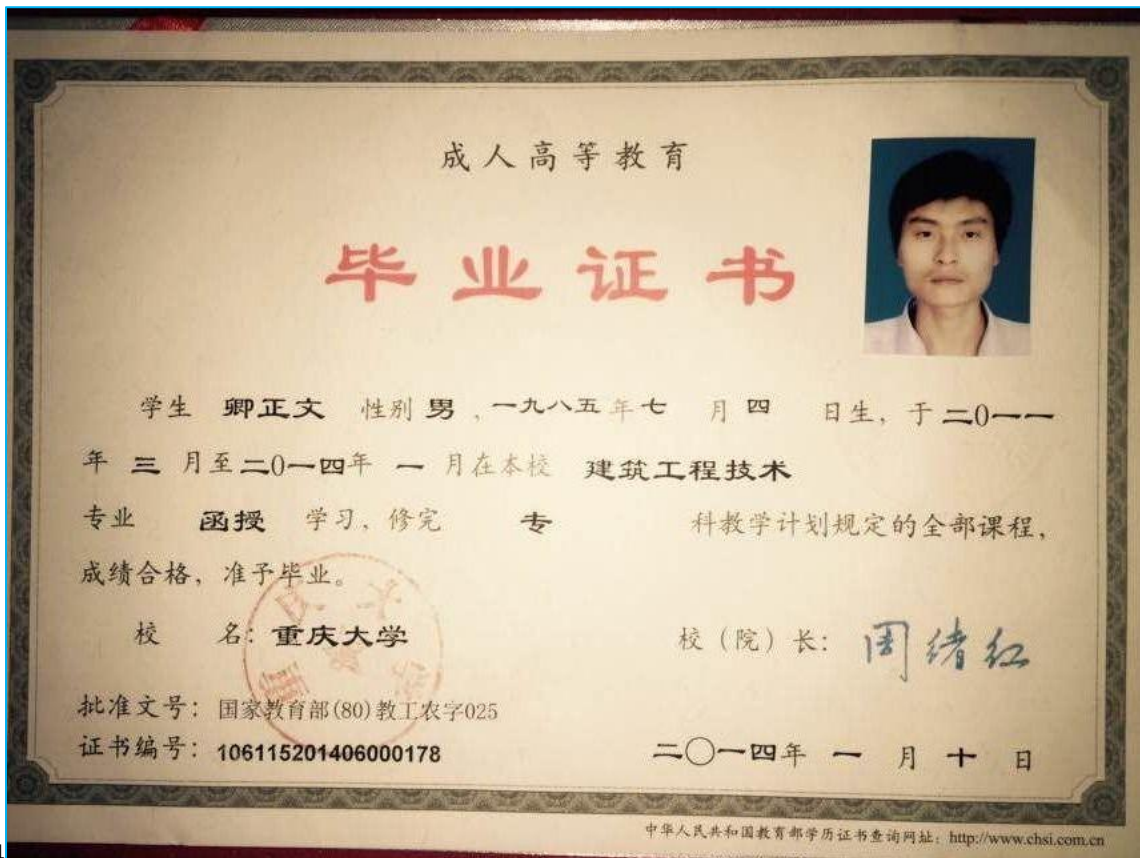 成人高等教育
毕业证书
学生 卿正文 性别 男 、一九八五年七 月四 日生，于二0一一
年 三 月至二0一四年 一 月在本校 建筑工程技术
专业 函授 学习，修完 专 科教学计划规定的全部课程，
成绩合格，准予毕业。
校 名：重庆大学 校（院）长：周绪红
重庆大学
批准文号：国家教育部(80)教工农字025
证书编号：106115201406000178 二〇一四年 一 月 十 日
中华人民共和国教育部学历证书查询网址：http://www.chsi.com.cn